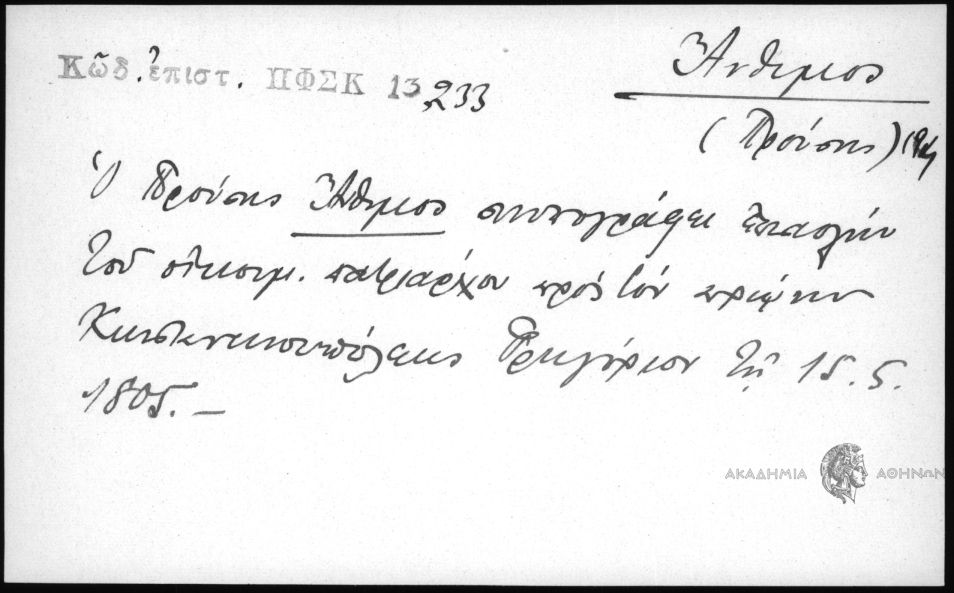 Κῶδ. ἐπιστ. ΠΦΣΚ 13, 233
Ἄνθιμος
(Προύσης)
Ὁ Προύσης Ἄνθιμος συνυπογράφει ἐπιστολὴν
τοῦ οἰκουμ. πατριάρχου πρὸς τὸν πρώην
Κωνσταντινουπόλεως Γρηγόριον τῇ 15. 5.
1805. –
ΑΚΑΔΗΜΙΑ ΑΘΗΝΩΝ